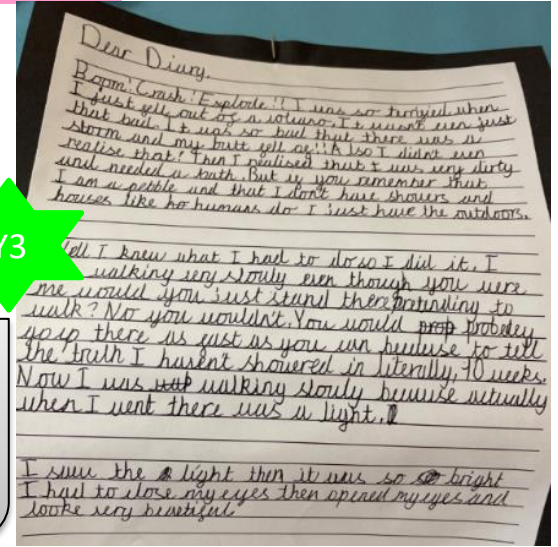 Dear Diary,
Boom! Crash! Explode!! I was so terrified when
I just fell out of a volcano. It wasn't even just
that bad. It was so bad that there was a
storm and my butt fell of!! Also I didnt even
realise that! Then I realised that I was very dirty
and needed a bath. But if you remember that
I am a pebble and that I don't have showers and
houses like ho humans do I just have the outdoors.
Y3
ell I knew what I had to do so I did it. I
walking very slowly even though you were
me would you just stand there pretending to
walk? No you wouldn't. You would prop probebley
go up there as fast as you can because to tell
the truth I haven't showered in literally, 70 weeks.
Now I was walking slowly because actually
when I went there was a light.
I saw the light then it was so so bright
I had to close my eyes then opened my eyes and
looke very beautiful.